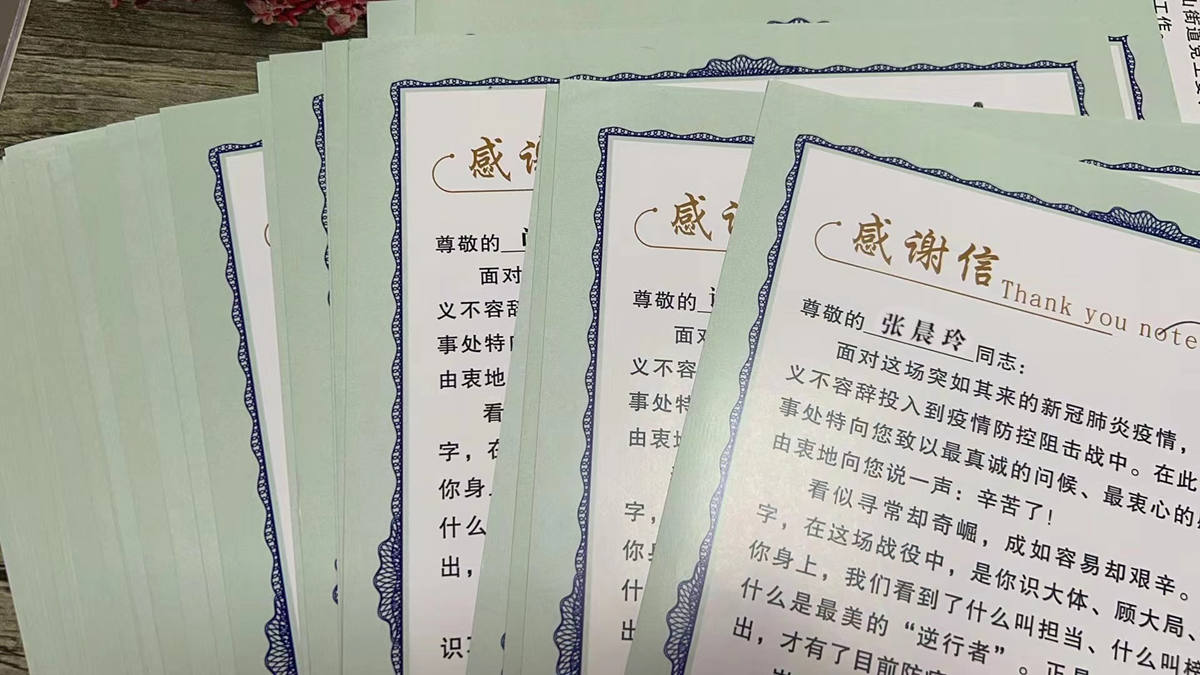 山街道党工委
工作
感谢信
Thank you note
尊敬的 张晨玲 同志：
面对这场突如其来的新冠肺炎疫情，
义不容辞投入到疫情防控阻击战中。在此
事处特向您致以最真诚的问候、最衷心的
由衷地向您说一声：辛苦了！
看似寻常却奇崛，成如容易却艰辛。
字，在这场战役中，是你识大体、顾大局、
你身上，我们看到了什么叫担当、什么叫
什么是最美的“逆行者”。正是
出，才有了目前防
感
尊敬的
面
义不容辞
事处特
由衷地
字，
你身
什
出
感
尊敬的
面对
义不容辞
事处特向
由衷地
看
字，在
你身上
什么
出，
识